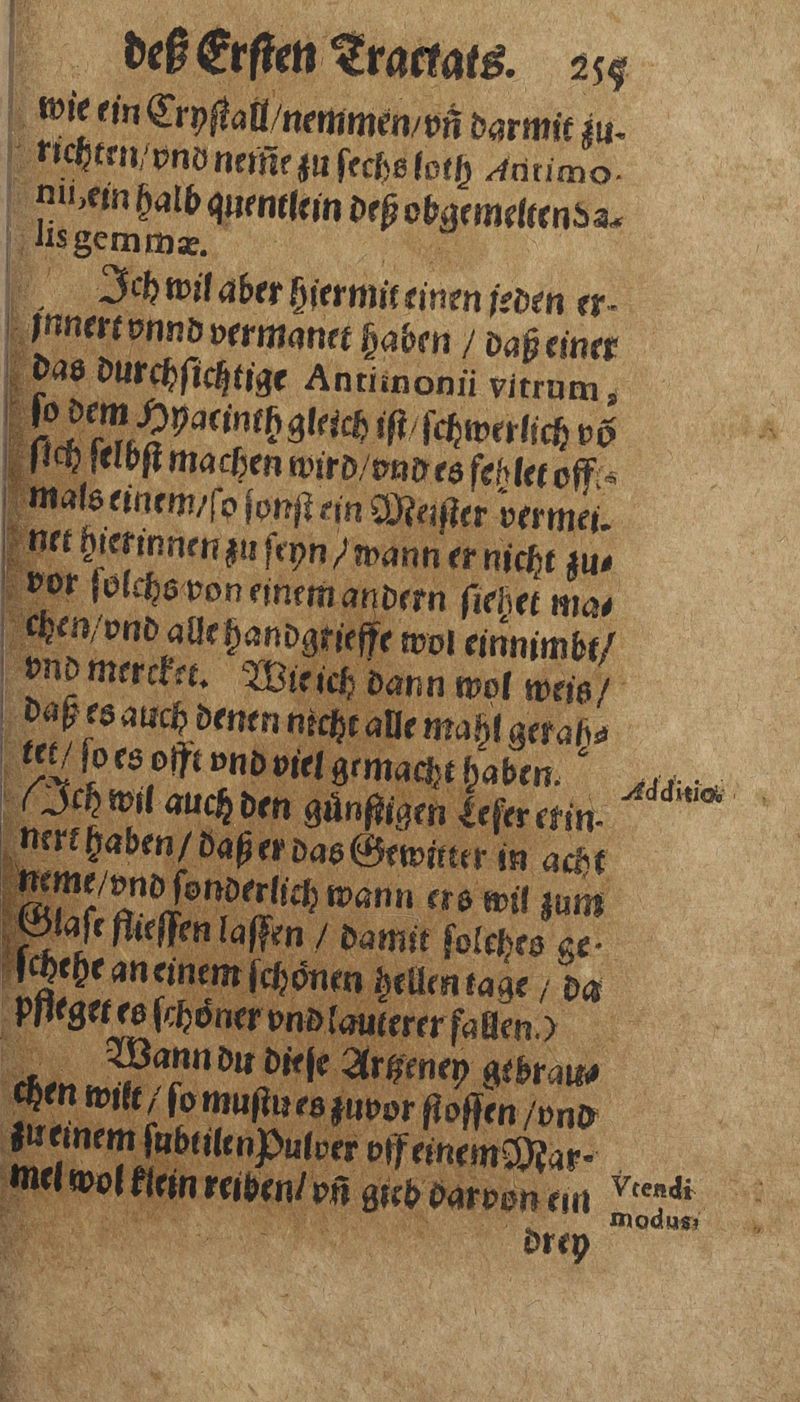 deß Ersten Tractats. 255
wie ein Crystall/nemmen/vñ darmit zu-
richten/vnd neme zu sechs loth Antimo-
nii, ein halb quentlein deß obgemelten Sa-
lis gemmæ.
Ich wil aber hiermit einen jeden er-
jnnert vnnd vermanet haben / daß einer
das durchsichtige Antimonii vitrum,
so dem Hyacinth gleich ist/schwerlich võ
sich selbst machen wird/vnd es fehlet off-
mals einem/so sonst ein Meister vermei-
net hierinnen zu seyn / wann er nicht zu-
vor solchs von einem andern siehet ma-
chen/vnd alle handgrieffe wol einnimbt/
vnd mercket. Wie ich dann wol weis/
daß es auch denen nicht alle mahl gerah-
tet/ so es offt vnd viel gemacht haben.
(Ich wil auch den günstigen Leser erin-
Additio
nert haben/ daß er das Gewitter in acht
neme/vnd sonderlich wann ers wil zum
Glase fliessen lassen / damit solches ge-
schehe an einem schönen hellen tage / da
pfleget es schöner vnd lauterer fallen.)
Wann du diese Artzeney gebrau-
chen wilt / so mustu es zuvor stossen /vnd
zu einem subtilen Pulver vff einem Mar-
mel wol klein reiben/ vñ gieb darvon ein
Vtendi
modus:
drey